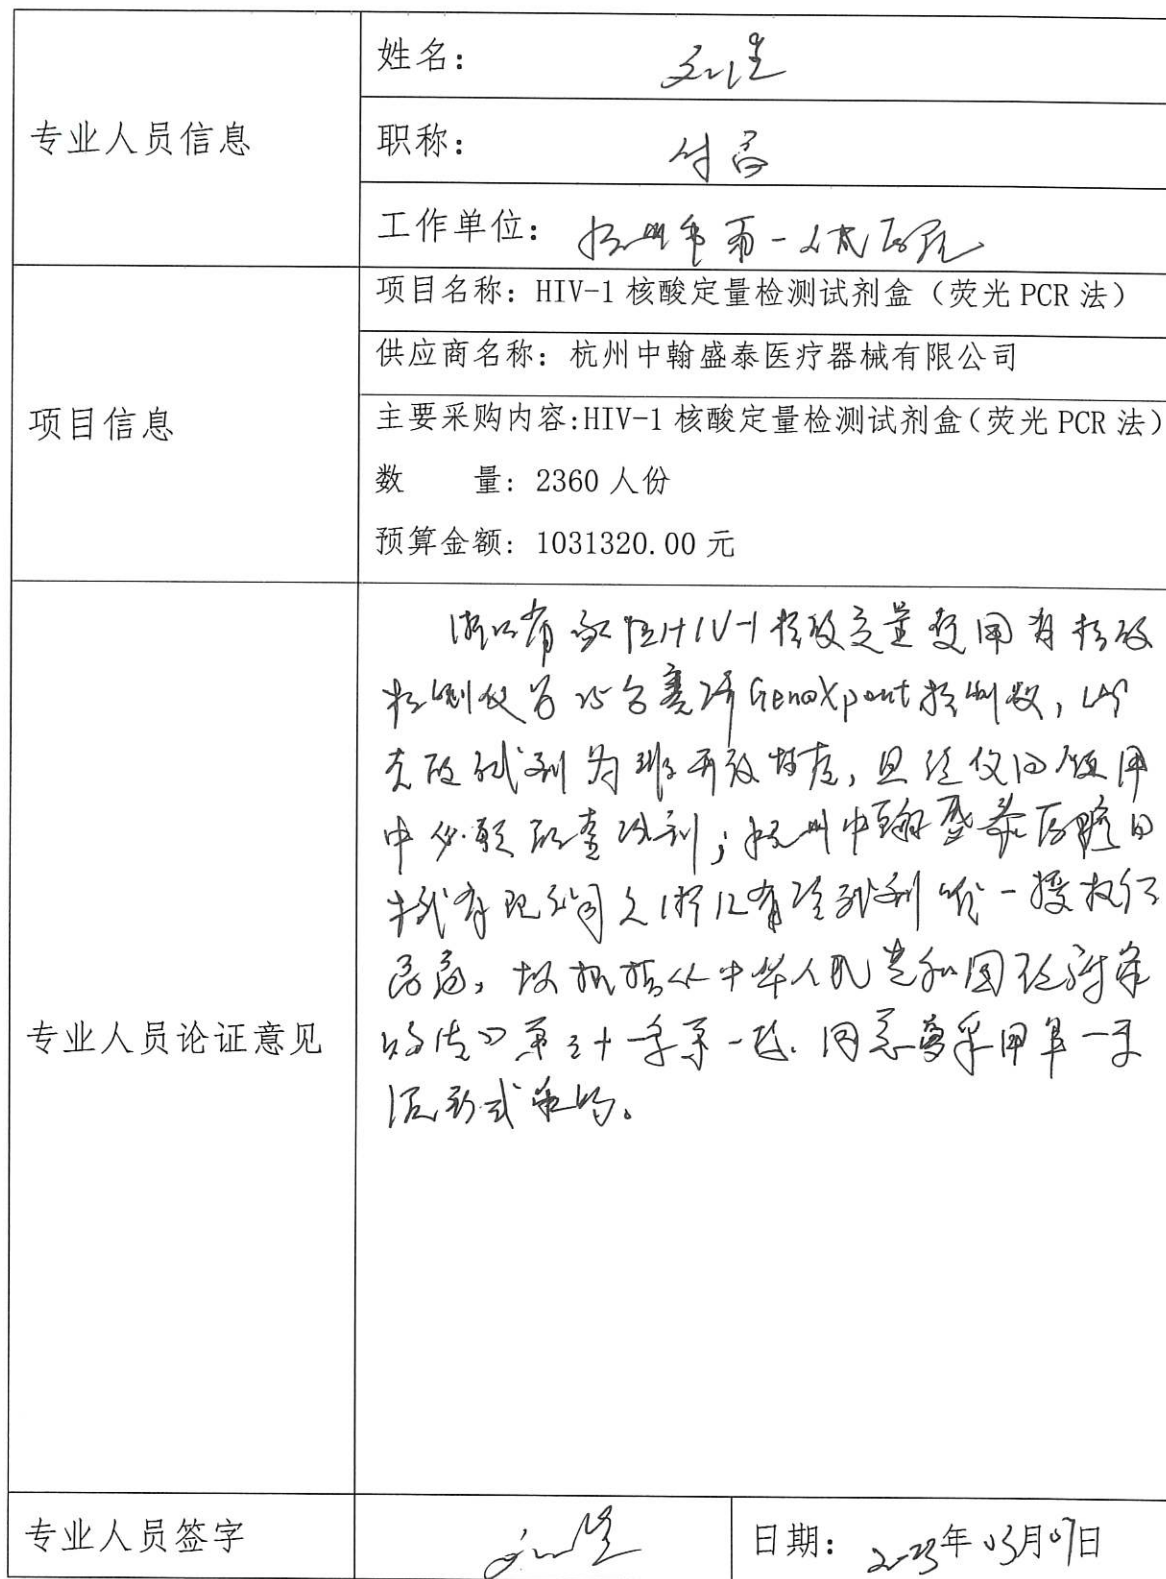 专业人员信息
姓名：
职称：付高
工作单位：杭州市第一人民医院
项目信息
项目名称：HIV-1 核酸定量检测试剂盒（荧光 PCR 法）
供应商名称：杭州中翰盛泰医疗器械有限公司
主要采购内容:HIV-1 核酸定量检测试剂盒（荧光 PCR 法）
数 量：2360 人份
预算金额：1031320.00 元
专业人员论证意见
浙江省 HIV-1核酸定量使用 核酸
检测仪为 赛沛GeneXpert检测仪，
试剂为非开放 ，且该仪 使用
中必须配套试剂；杭州中翰盛泰医疗
械有限公司 浙江省该试剂唯一授权经
，故根据《中华人民共和国政府采
购法》第三十一条第一款，同意 采用单一来
源形式采购。
专业人员签字
日期：2023年03月07日